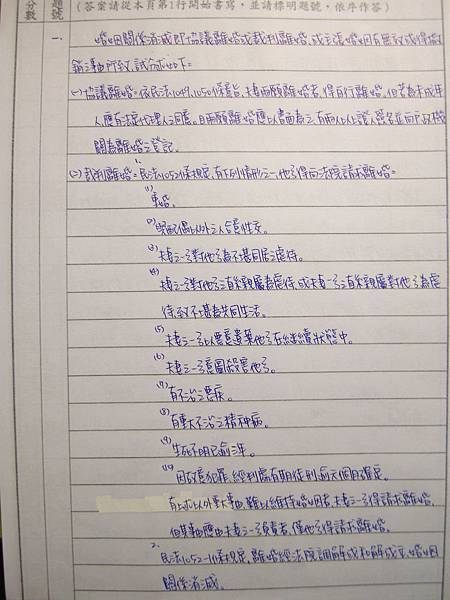 分數
題號
(答案請從本頁第1行開始書寫,並請標明題號,依序作答)
一、
婚姻關係消滅即協議離婚或裁判離婚,或主張婚姻有無效或得撤
銷之事由所致,試分述如下:
(一)協議離婚:依民法1049、1050條規定,夫妻兩願離婚者,得自行離婚,但若未成年
人應有法定代理人之同意,且兩願離婚應以書面為之,有兩人以上證人簽名並向戶政機
關為離婚之登記。
(二)裁判離婚:1.民法1052條規定,有下列情形之一,他方得向法院請求離婚:
(1)重婚。
(2)與配偶以外之人合意性交。
(3)夫妻之一方對他方為不堪同居之虐待。
(4)夫妻之一方對他方之直系親屬為虐待,或夫妻一方之直系親屬對他方為虐
待,致不堪為共同生活。
(5)夫妻之一方以惡意遺棄他方在繼續狀態中。
(6)夫妻之一方意圖殺害他方。
(7)有不治之惡疾。
(8)有重大不治之精神病。
(9)生死不明已逾三年。
(10)因故意犯罪,經判處有期徒刑逾六個月確定。
有上述以外重大事由,難以維持婚姻者,夫妻之一方得請求離婚,
但其事由應由夫妻之一方負責者,僅他方得請求離婚。
2.
民法1052-1條規定,離婚經法院調解或和解成立,婚姻
關係消滅。